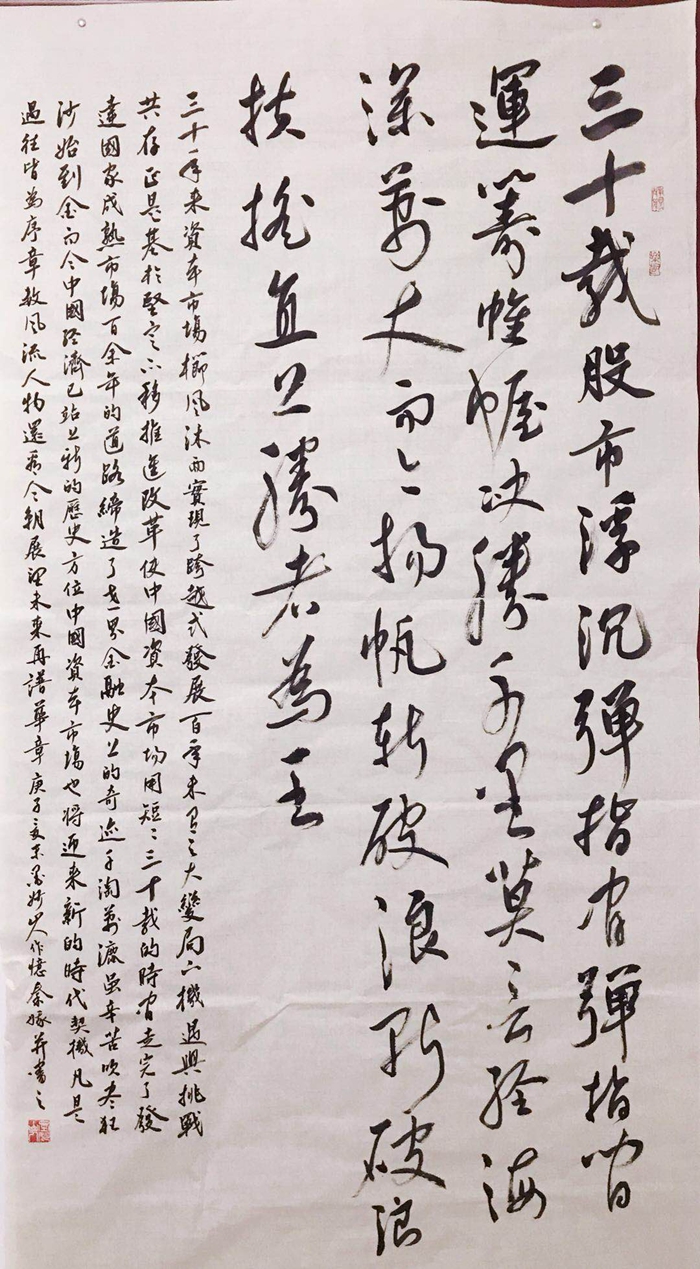 三十載股市浮沉彈指間彈指間
運籌帷幄决勝千里莫言經海
深萬丈而今揚帆斬破浪斬破浪
扶搖直上勝者為王
三十年来資本市場櫛風沐雨實現了跨越式發展百年未有之大變局下機遇與挑戰
共存正是基於堅定不移推進改革使中國資本市場用短〻三十載的時間走完了發
達國家成熟市場百余年的道路締造了世界金融史上的奇迹千淘萬漉虽辛苦吹盡狂
沙始到金而今中國經濟已站上新的歷史方位中國資本市場也將迎来新的時代契機凡是
過往皆為序章数風流人物還看今朝展望未来再譜華章庚子山人作憶秦娥并書之